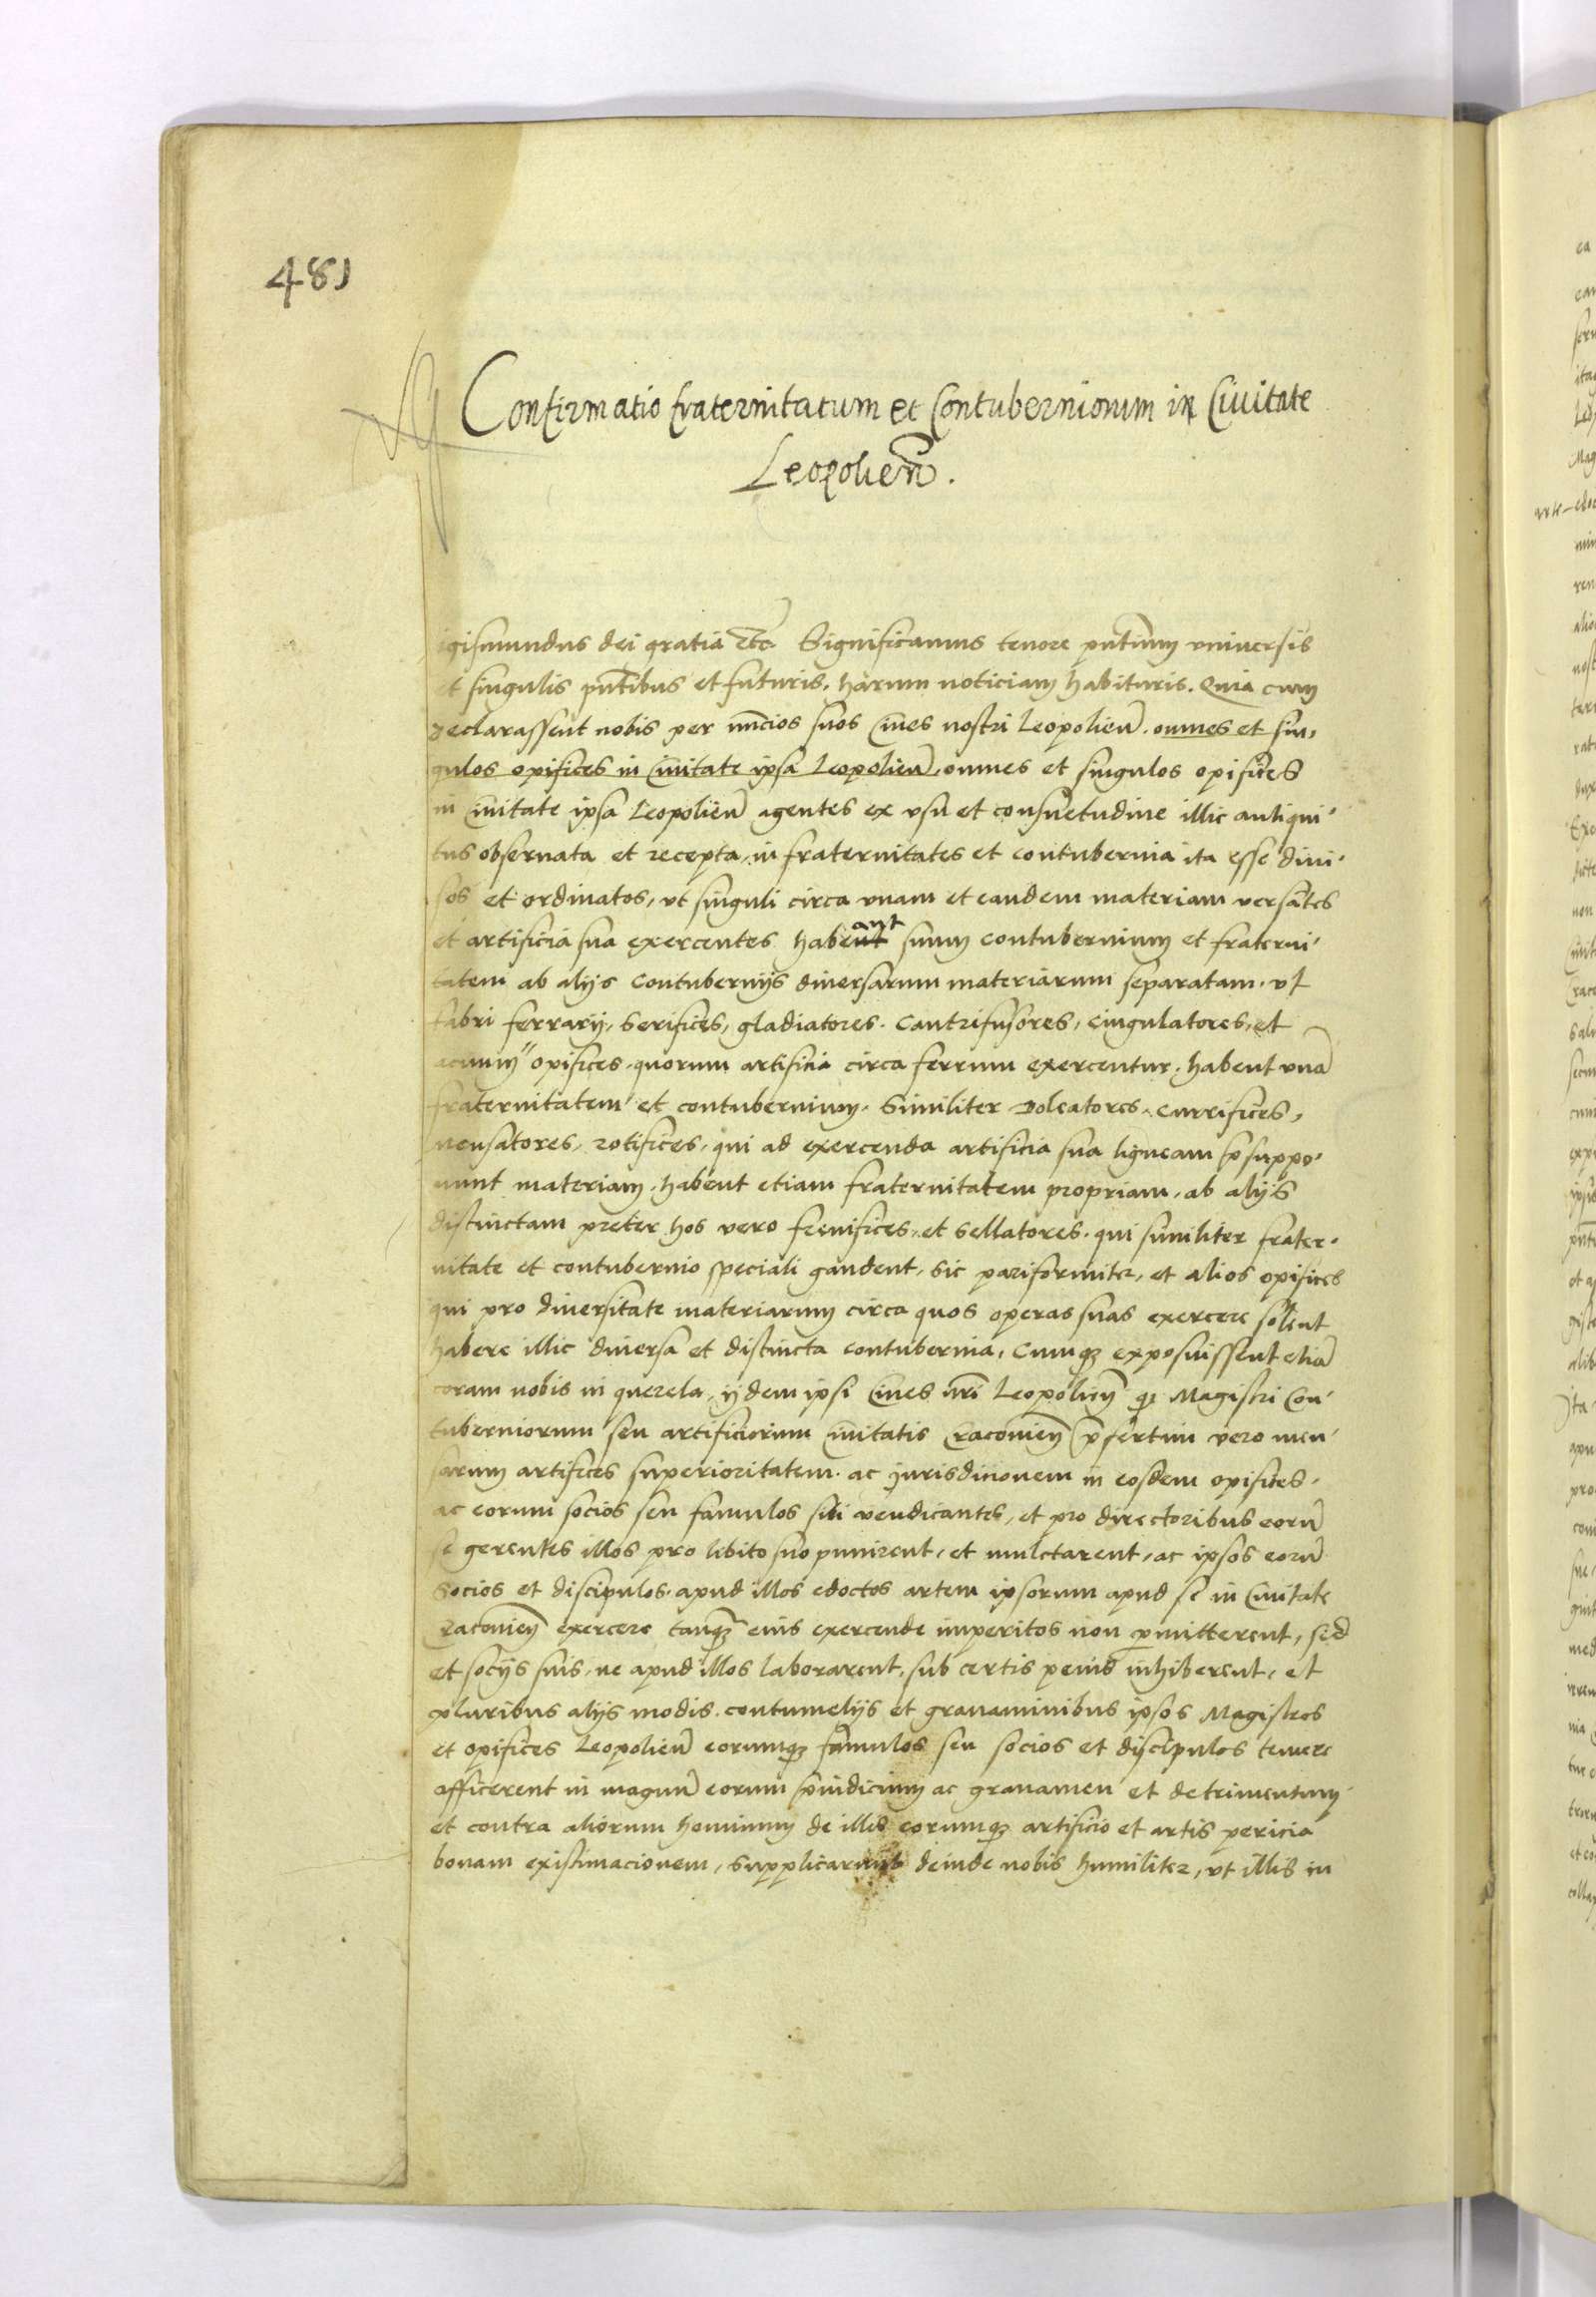 481
Confirmatio fraternitatum et Contuberniorum in Ciuitate
Leopolien̄.
igismundus dei gratia etc̄ Significamus tenore pn̄tium vniuersis
et singulis pn̄tibus et futuris, harum noticiam habituris. Quia cum
declarassent nobis per nuncios suos Ciues nostri Leopolien̄. omnes et sin,
gulos opifices in Ciuitate ipsa Leopolien̄, omnes et singulos opifices
in Ciuitate ipsa Leopolien̄ agentes ex vsu et consuetudine illic antiqui,
tus obseruata et recepta, in fraternitates et contubernia ita esse diui,
sos et ordinatos, vt singuli circa vnam et eandem materiam versātes
et artificia sua exercentes habeant suum contubernium et fraterni,
tatem ab alijs Contubernijs diuersarum materiarum separatam. vt
fabri ferrarij, Serifices, gladiatores. Cantrifusores, Cingulatores, et
acuum opifices. quorum artificia circa ferrum exercentur. habent vnā
fraternitatem et contubernium. Similiter Doleatores, Currifices,
mensatores, rotifices, qui ad exercenda artificia sua ligneam p̄suppo,
nunt materiam. habent etiam fraternitatem propriam, ab alijs
distinctam preter hos vero frenifices, et Sellatores. qui similiter frater,
nitate et contubernio speciali gaudent, Sic pariformiter, et alios opifices
qui pro diuersitate materiarum circa quos operas suas exercere solent
habere illic diuersa et distincta contubernia, Cumqz exposuissent etiā
coram nobis in querela, ijdem ipsi Ciues nr̄i Leopolien̄ qz Magistri Con,
tuberniorum seu artificiorum Ciuitatis Cracouien̄ p̄sertim vero men,
sarum artifices superioritatem. ac Jurisdicionem in eosdem opifices.
ac eorum socios seu famulos sibi vendicantes, et pro directoribus eorū
se gerentes illos pro libito suo punirent, et mulctarent, ac ipsos eorū
Socios et discipulos. apud illos edoctos artem ipsorum apud se in Ciuitate
Cracouien̄ exercere tanqz eius exercende imperitos non p̱mitterent, sed
et socijs suis, ne apud illos laborarent, sub certis penis inhiberent, et
pluribus alijs modis. contumelijs et grauaminibus ipsos Magistros
et opifices Leopolien̄ eorumqz famulos seu socios et discipulos temere
afficerent in magnū eorum p̄iudicium ac grauamen et detrimentum
et contra aliorum hominum de illis eorumqz artificio et artis pericia
bonam existimacionem, Supplicarunt deinde nobis humiliter, vt illis in